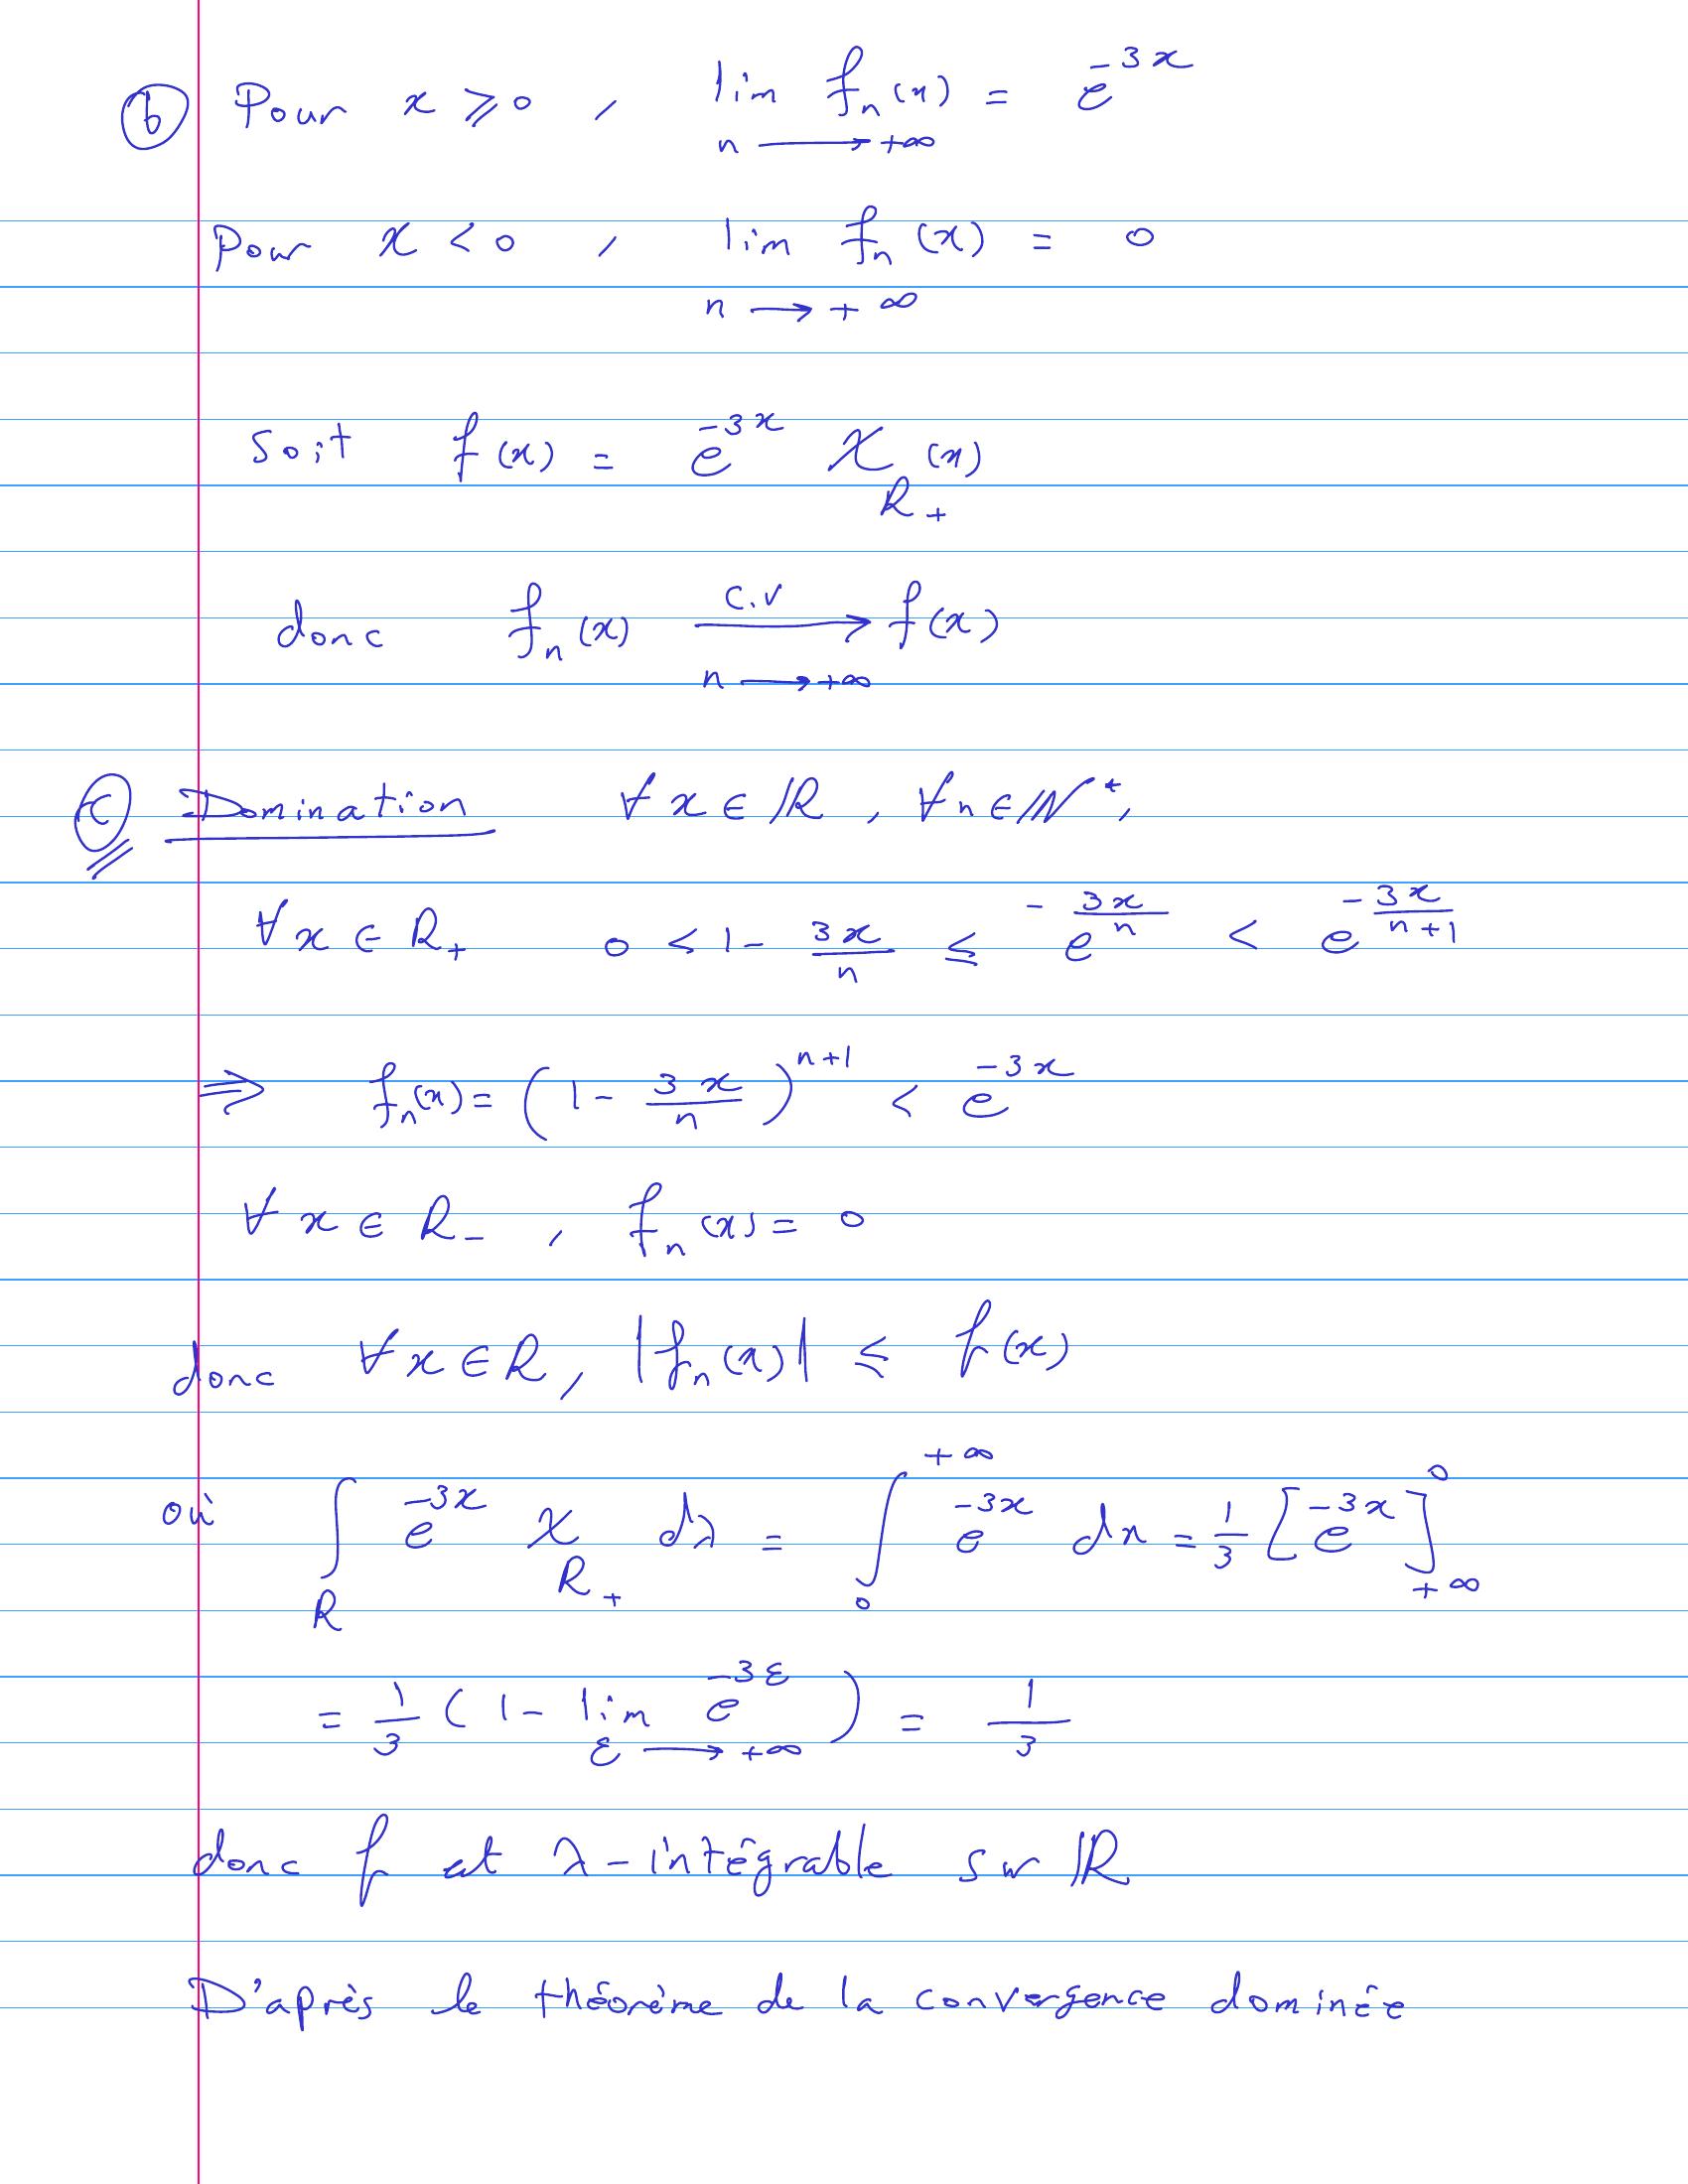 ⓑ Pour x ⩾ 0 , lim fₙ(x) = e^{-3x}
n ⟶ +∞
Pour x < 0 , lim fₙ(x) = 0
n ⟶ +∞
Soit f(x) = e^{-3x} χ_{R+}(x)
donc fₙ(x) ⟶ f(x)
c.v
n ⟶ +∞
ⓒ Domination ∀x∈ℝ , ∀n∈ℕ*,
∀x ∈ R₊ 0 < 1 - 3x/n ≤ e^{-3x/n} < e^{-3x/(n+1)}
⇒ fₙ(x) = (1 - 3x/n)^{n+1} < e^{-3x}
∀x ∈ R₋ , fₙ(x) = 0
donc ∀x∈R, |fₙ(x)| ≤ f(x)
où ∫_R e^{-3x} χ_{R+} dλ = ∫_0^{+∞} e^{-3x} dx = 1/3 [e^{-3x}]_{+∞}^{0}
= 1/3 (1 - lim_{ε ⟶ +∞} e^{-3ε}) = 1/3
donc f est λ-intégrable sur ℝ
D'après le théorème de la convergence dominée